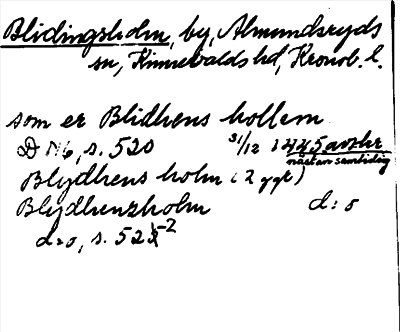 Blidingsholm, by, Almundsryds
sn, Kinnevalds hd, Kronob. l.
som er Blidhens hollem
D N6, s. 520 31/12 1445 avskr
nästan samtidig
Blydhens holm (2 ggr)
Blydhenzholm d:o
d:o, s. 522